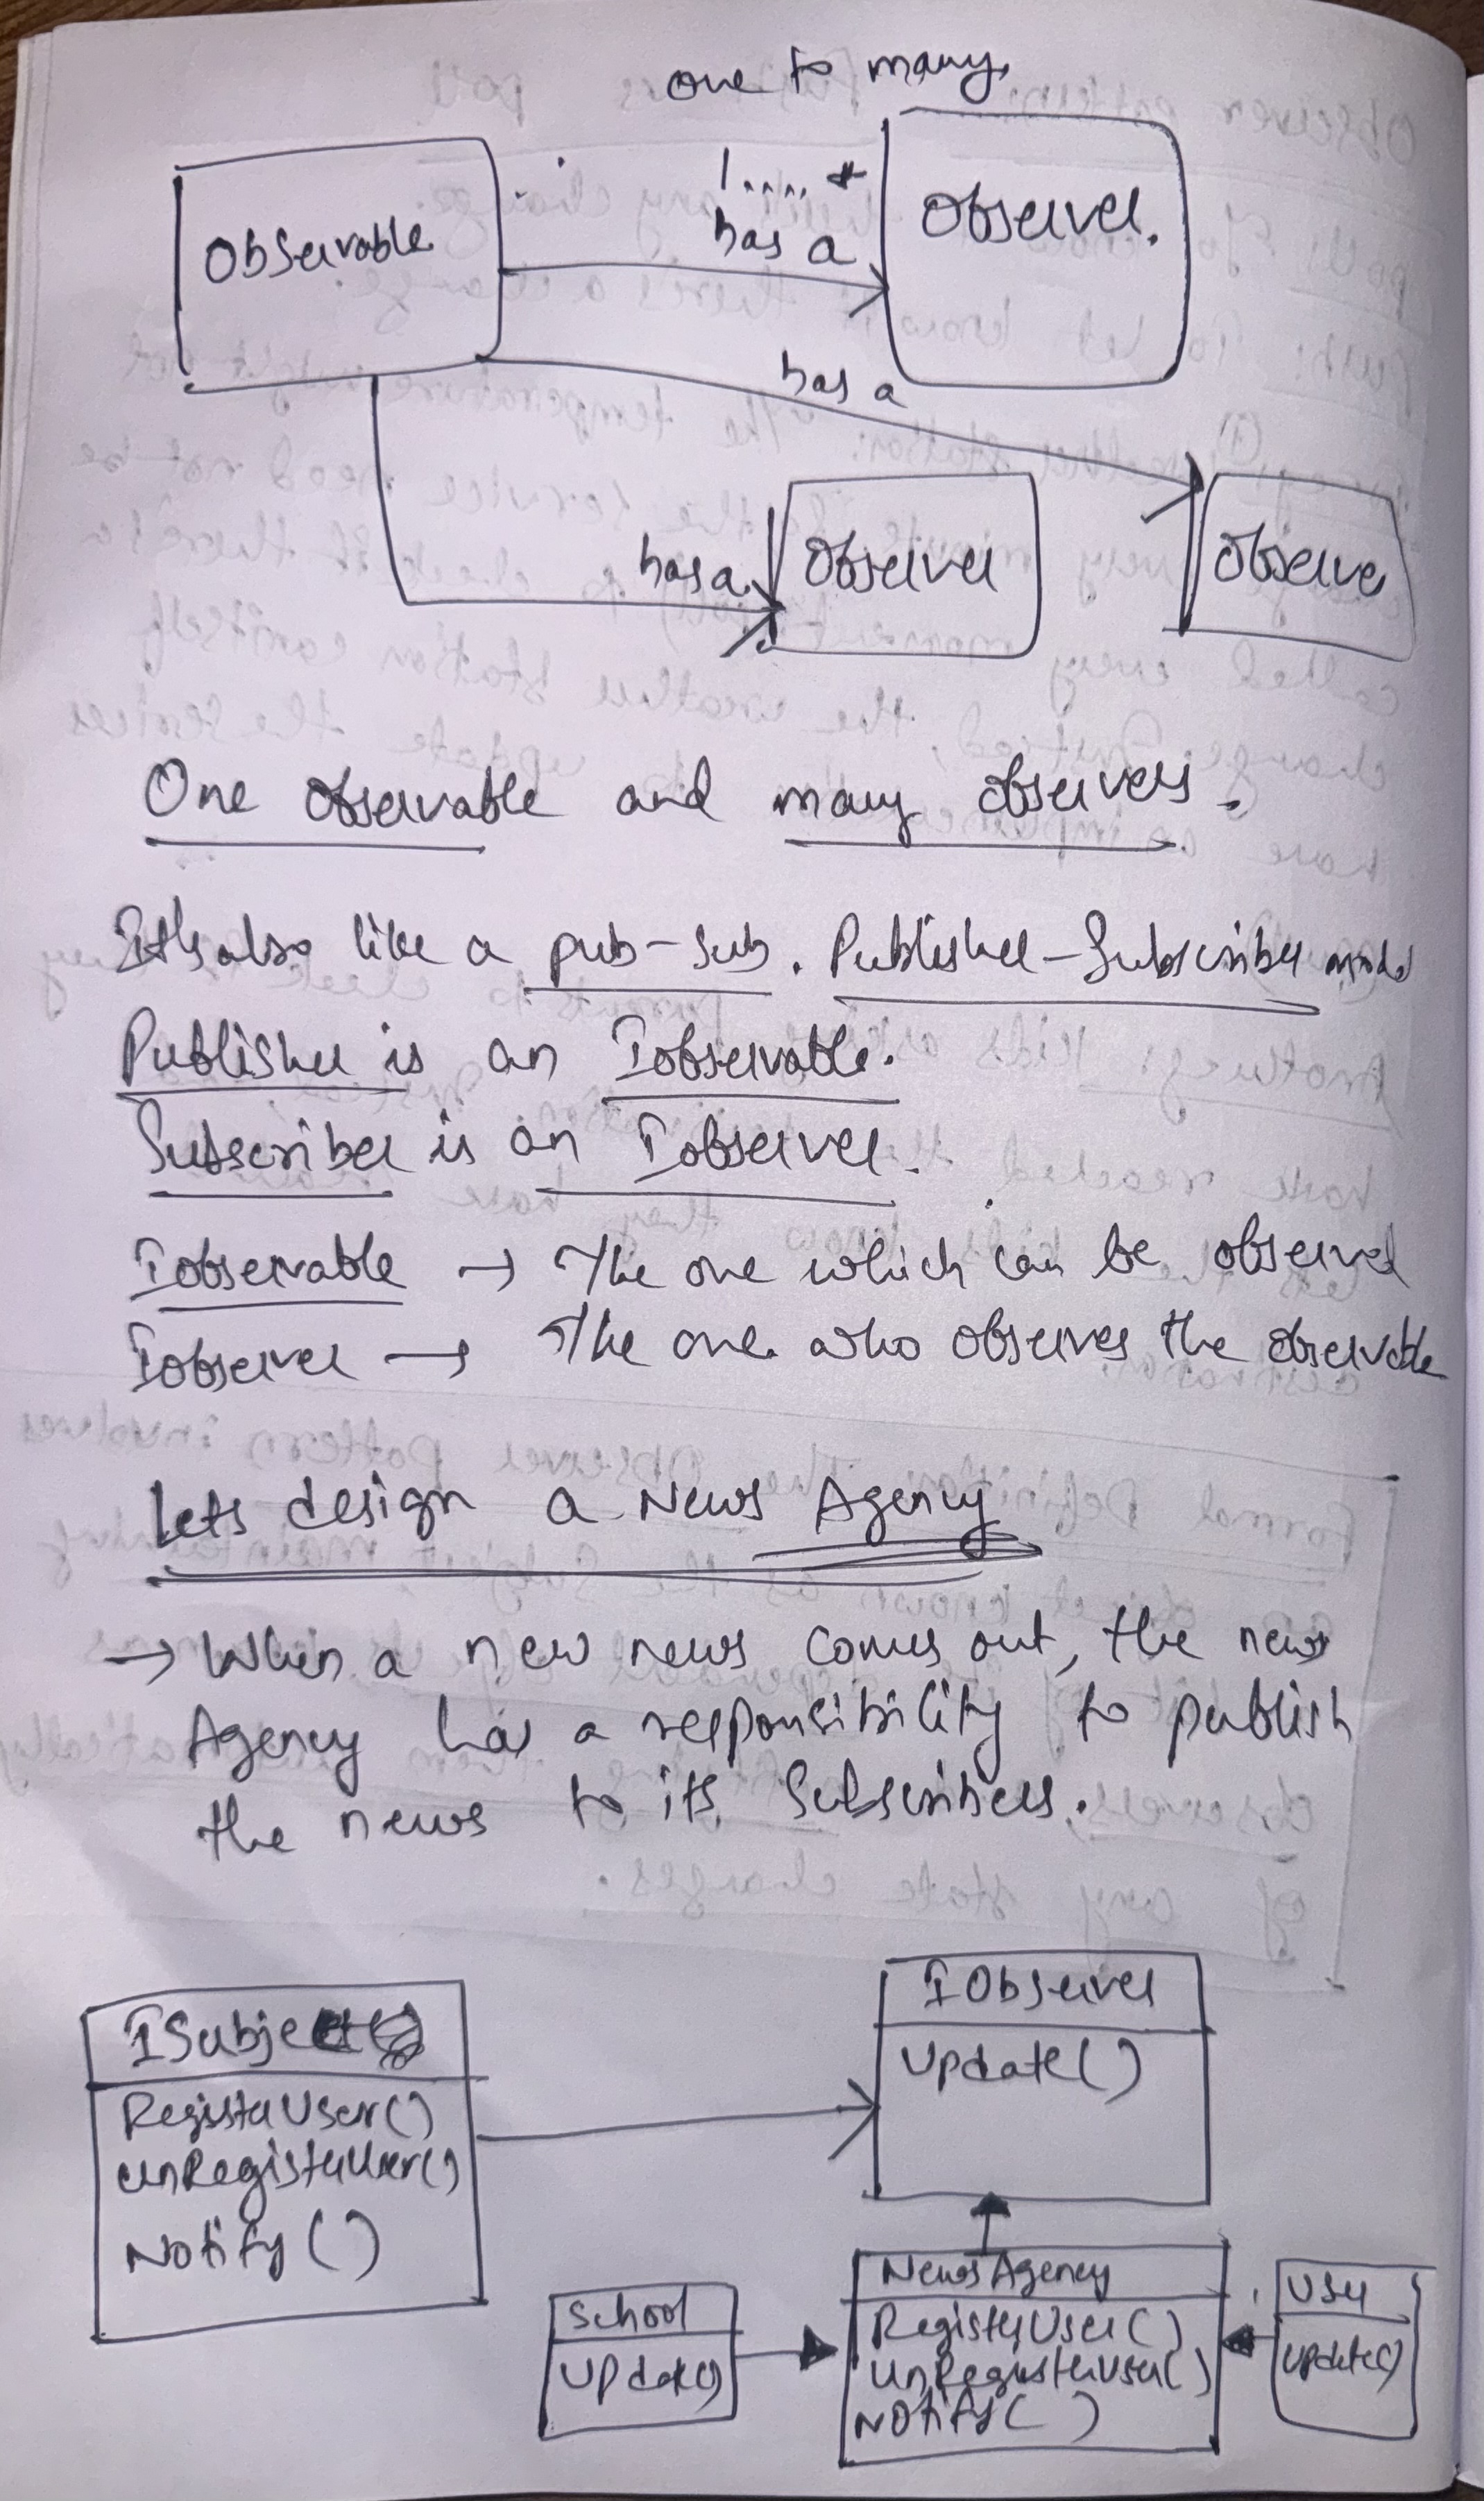 one to many
1....*
Observable
has a
Observer.
has a
has a
Observer
Observer
One observable and many observers.
It's also like a pub-sub. Publisher-Subscriber model
Publisher is an Iobservable.
Subscriber is an Iobserver.
Iobservable → The one which can be observed
Iobserver → The one who observes the observable
Lets design a News Agency
→ When a new news comes out, the news
Agency has a responsibility to publish
the news to its Subscribers.
ISubject
RegisterUser()
UnRegisterUser()
Notify()
IObserver
Update()
School
Update()
NewsAgency
RegisterUser()
UnRegisterUser()
Notify()
User
Update()